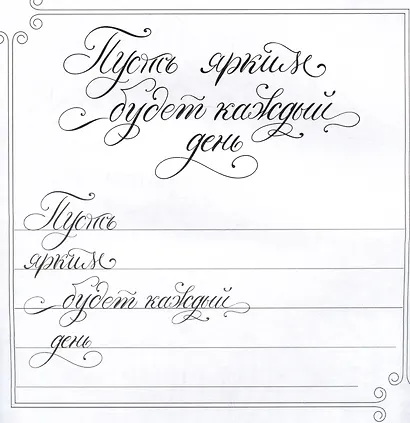 Пусть ярким
будет каждый
день
Пусть
ярким
будет каждый
день